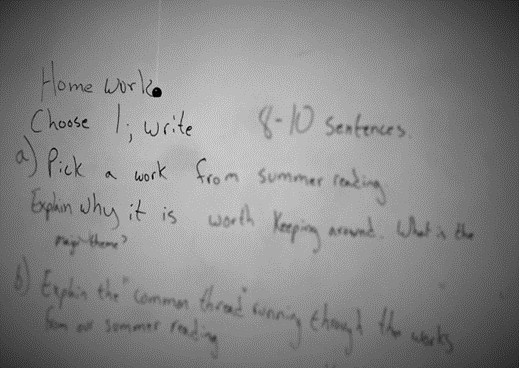 Home work
Choose 1; write 8-10 sentences.
a) Pick a work from summer reading
Explain why it is worth keeping around. What is the
major theme?
b) Explain the "common thread" running through the works
from our summer reading